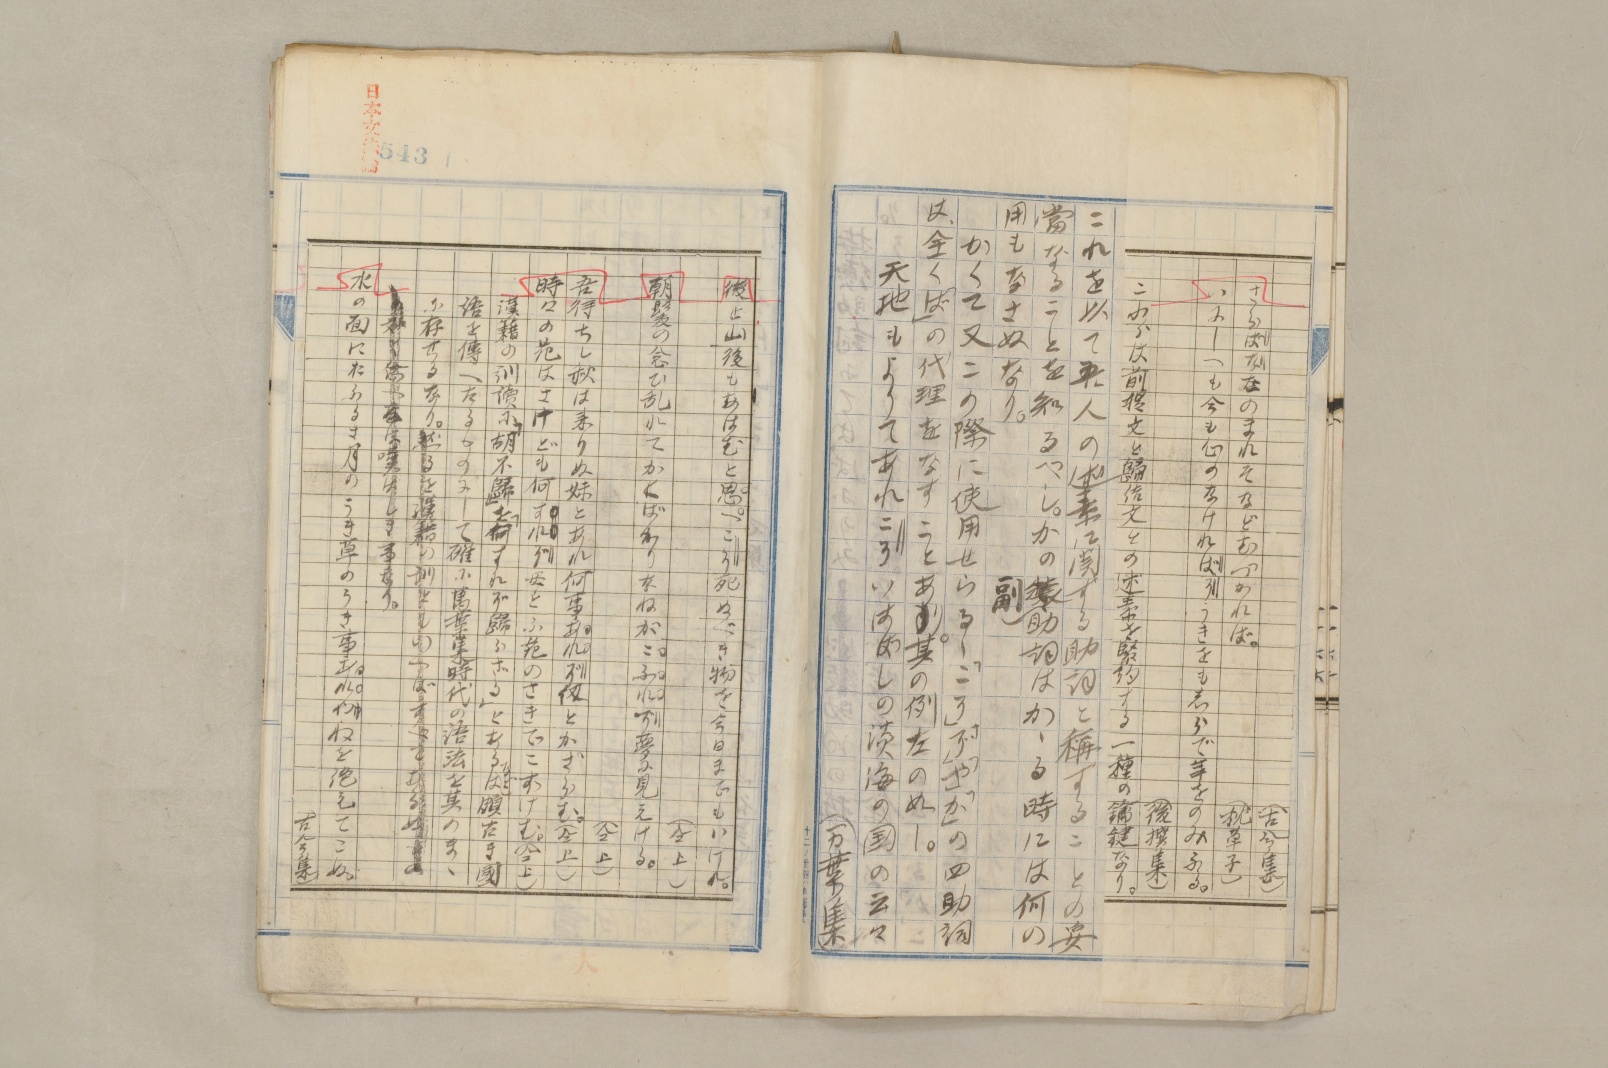 古今集
さらばなぞ在のまれそなどむつかれば。
枕草子
いにしへも今も心のなければぞうきをも志らで年をのみふる。
後撰集
これらは前提文と歸結文との述素を緊約する一種の鑰鍵なり。
これを以て本人の述素に関する助詞と稱することの妥
當なることを知るべし。かの 副助詞はかゝる時には何の
用もなさぬなり。
かくて又この際に使用せらるゝ「こそ」「ぞ」「や」「か」の四助詞
は、全く「ば」の代理をなすことあり。其の例左の如し。
天地もよりてあれこそいはばしの淡海の国の云々
(万葉集)
後と山後もあはむと思へこそ死ぬべき物を今日までもいけれ。
(仝上)
朝髪の念ひ乱れてかくばかりなねがこふれぞ夢に見えける。
(仝上)
吾待ちし秋は来りぬ妹とあれ何事あれぞ紐とかざらむ。(仝上)
時々の花はさけども何すれぞ母とふ花のさきでこずけむ。(仝上)
漢籍の訓讀に「胡不歸」を「何すれぞ歸らざる」とあるは頗古き國
語を傳へたるものにして確に萬葉集時代の語法を其のまゝ
に存せるなり。
水の面におふる五月のうき草のうき事あれや根を絶えてこぬ。
(古今集)
日本文法論
543